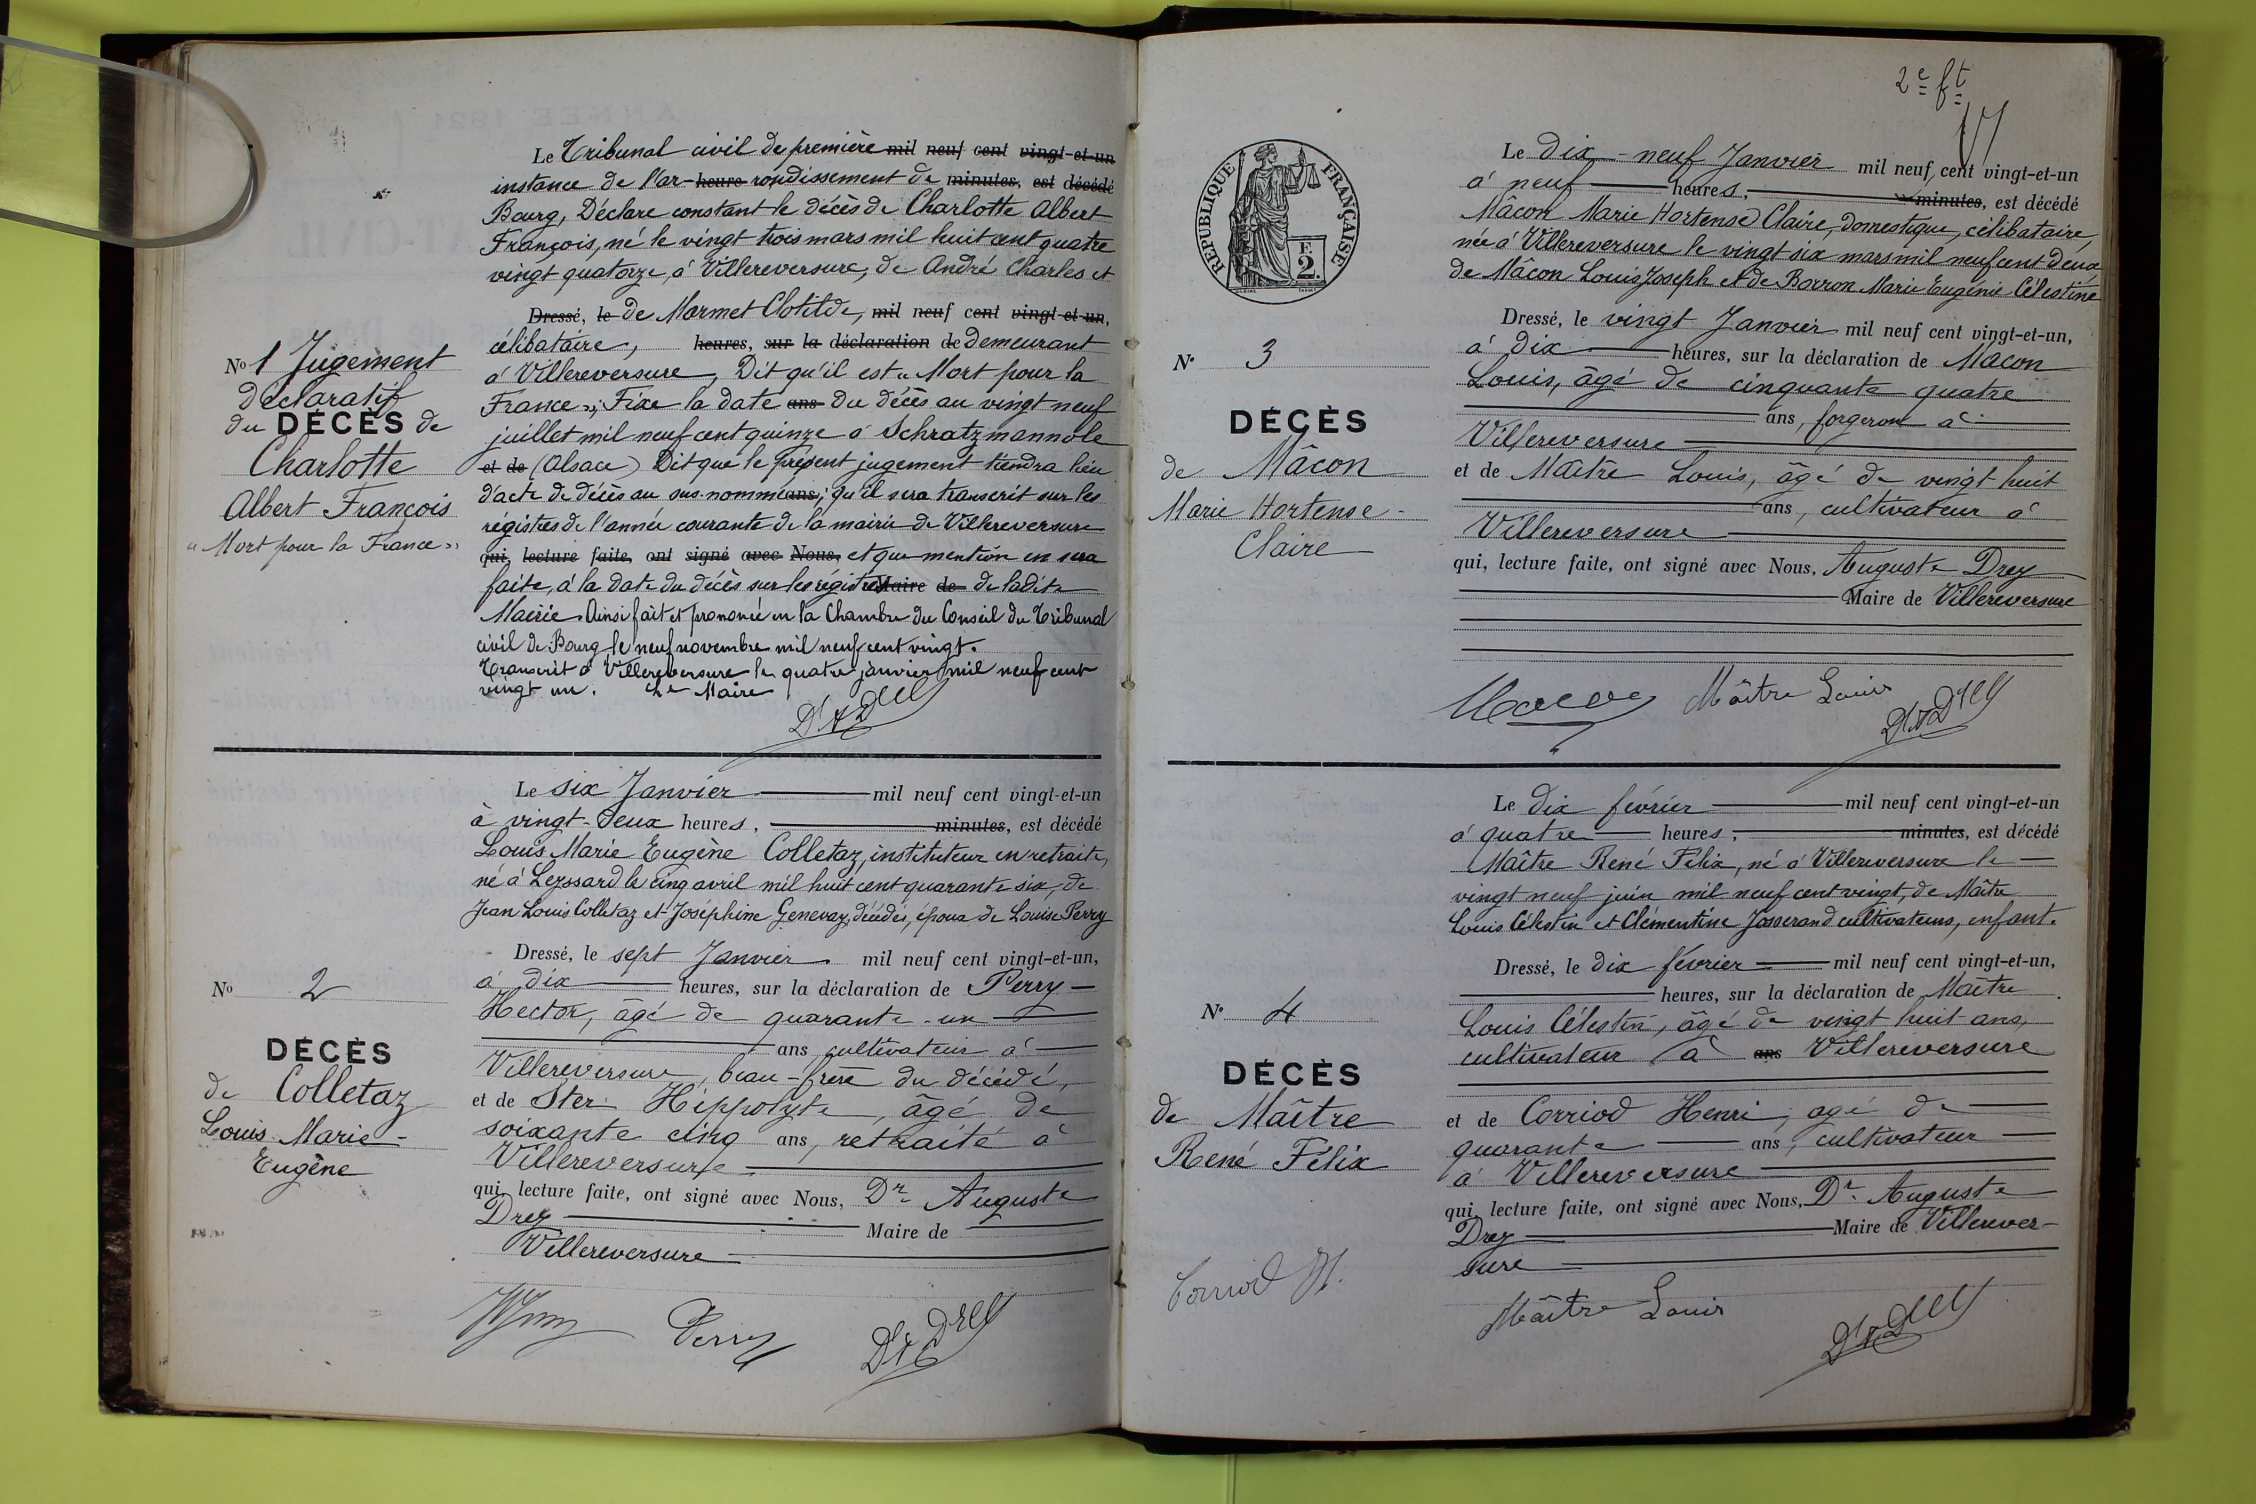 Le Tribunal civil de première mil neuf cent vingt-et-un
instance de l'ar- heure rondissement de minutes, est décédé
Bourg, Déclare constant le décès de Charlotte Albert
François, né le vingt trois mars mil huit cent quatre
vingt quatorze, à Villereversure, de André Charles et
Dressé, le de Marmet Clotilde, mil neuf cent vingt-et-un,
célibataire, heures, sur la déclaration de demeurant
à Villereversure, Dit qu'il est « Mort pour la
France », Fixe la date ans du décès au vingt neuf
juillet mil neuf cent quinze à Schratzmannele
et de (Alsace) Dit que le présent jugement tiendra lieu
d'acte de décès au sus-nommé ans; qu'il sera transcrit sur les
régistres de l'année courante de la mairie de Villereversure
qui, lecture faite, ont signé avec Nous, et que mention en sera
faite, à la date du décès sur les régistres Maire de de ladite
Mairie. Ainsi fait et prononcé en la Chambre du Conseil du Tribunal
civil de Bourg le neuf novembre mil neuf cent vingt.
Transcrit à Villereversure le quatre janvier mil neuf cent
vingt un. Le Maire
Dr A Drey
No 1 Jugement
déclaratif
du DÉCÈS de
Charlotte
Albert François
« Mort pour la France »
Le six Janvier mil neuf cent vingt-et-un
à vingt-deux heures, minutes, est décédé
Louis Marie Eugène Colletaz, instituteur en retraite,
né à Leyssard le cinq avril mil huit cent quarante six, de
Jean Louis Colletaz et Joséphine Genevay, décédés, époux de Louise Perry
Dressé, le sept Janvier mil neuf cent vingt-et-un,
à dix heures, sur la déclaration de Perry
Hector, âgé de quarante-un
ans, cultivateur à
Villereversure, beau-frère du décédé,
et de Ster Hippolyte, âgé de
soixante cinq ans, retraité à
Villereversure
qui, lecture faite, ont signé avec Nous, Dr Auguste
Drey Maire de
Villereversure
Perry Dr A Drey
No 2
DÉCÈS
de Colletaz
Louis Marie-
Eugène
2e ft
RÉPUBLIQUE FRANÇAISE
F.
2.
Le dix-neuf Janvier mil neuf cent vingt-et-un
à neuf heures, minutes, est décédé
Mâcon Marie Hortense Claire, domestique, célibataire,
née à Villereversure le vingt six mars mil neuf cent deux,
de Mâcon Louis Joseph et de Borron Marie Eugénie Célestine
Dressé, le vingt Janvier mil neuf cent vingt-et-un,
à dix heures, sur la déclaration de Mâcon
Louis, âgé de cinquante quatre
ans, forgeron à
Villereversure
et de Maître Louis, âgé de vingt huit
ans, cultivateur à
Villereversure
qui, lecture faite, ont signé avec Nous, Auguste Drey
Maire de Villereversure
Macon Maître Louis Dr A Drey
No 3
DÉCÈS
de Mâcon
Marie Hortense-
Claire
Le dix février mil neuf cent vingt-et-un
à quatre heures, minutes, est décédé
Maître René Félix, né à Villereversure le
vingt neuf juin mil neuf cent vingt, de Maître
Louis Célestin et Clémentine Josserand cultivateurs, enfant.
Dressé, le dix février mil neuf cent vingt-et-un,
heures, sur la déclaration de Maître
Louis Célestin, âgé de vingt huit ans,
cultivateur à ans Villereversure
et de Corriod Henri, âgé de
quarante ans, cultivateur
à Villereversure
qui, lecture faite, ont signé avec Nous, Dr. Auguste
Drey Maire de Villerever-
sure
Corriod H. Maître Louis Dr A Drey
No 4
DÉCÈS
de Maître
René Félix